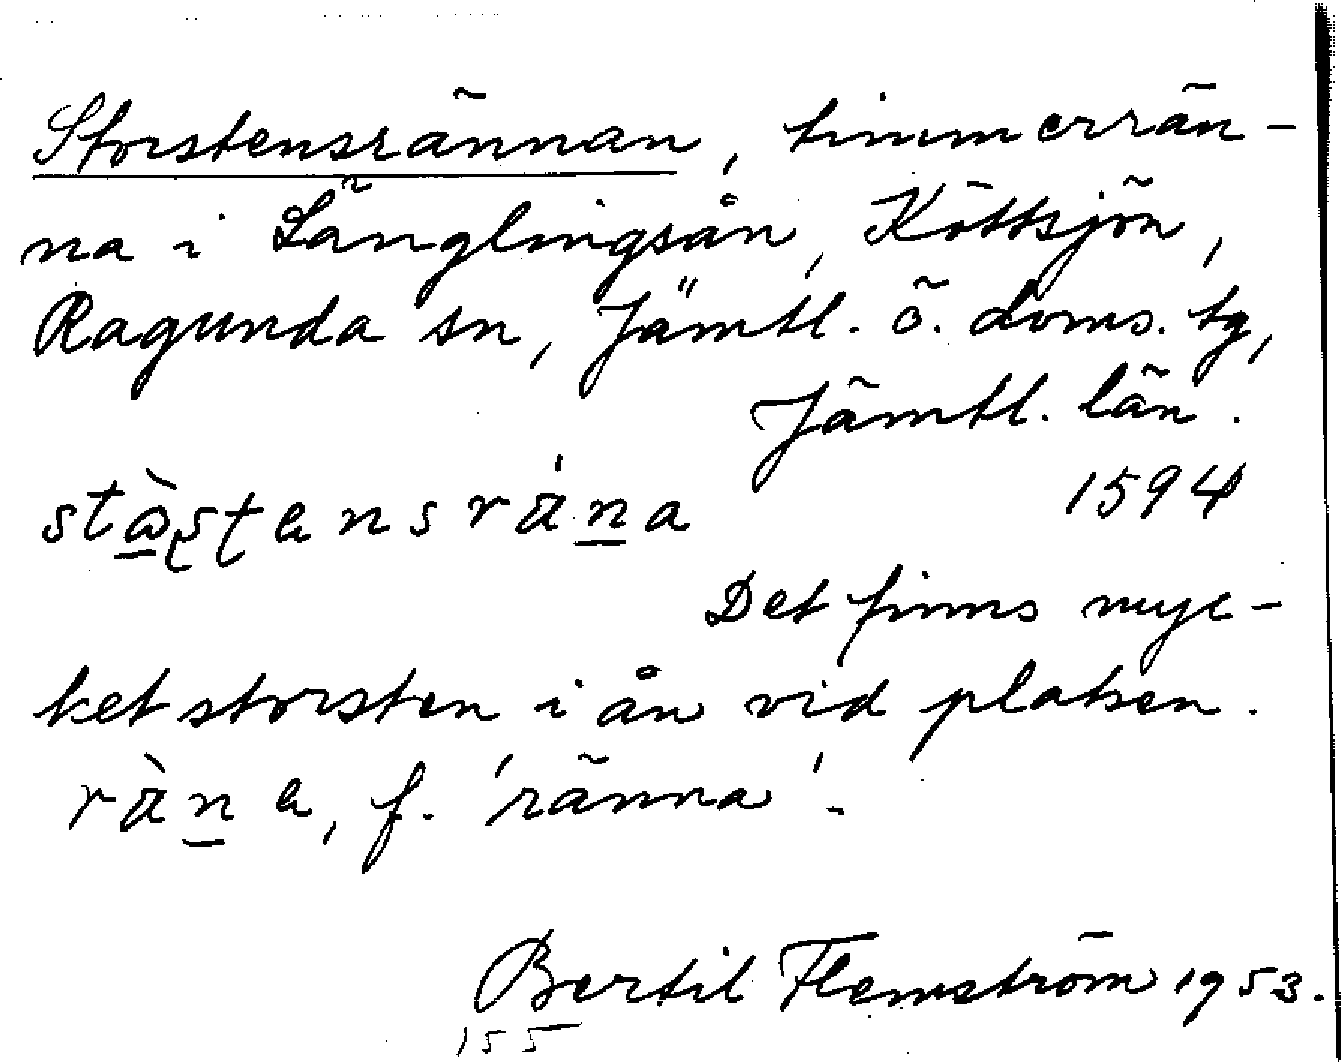 Storstensrännan, timmerrän-
na i Länglingsån, Köttsjön,
Ragunda sn, Jämtl. ö. doms. tg,
Jämtl. län.
1594
Det finns myc-
ket storsten i ån vid platsen.
f. 'ränna'.
Bertil Flemström 1953.
155